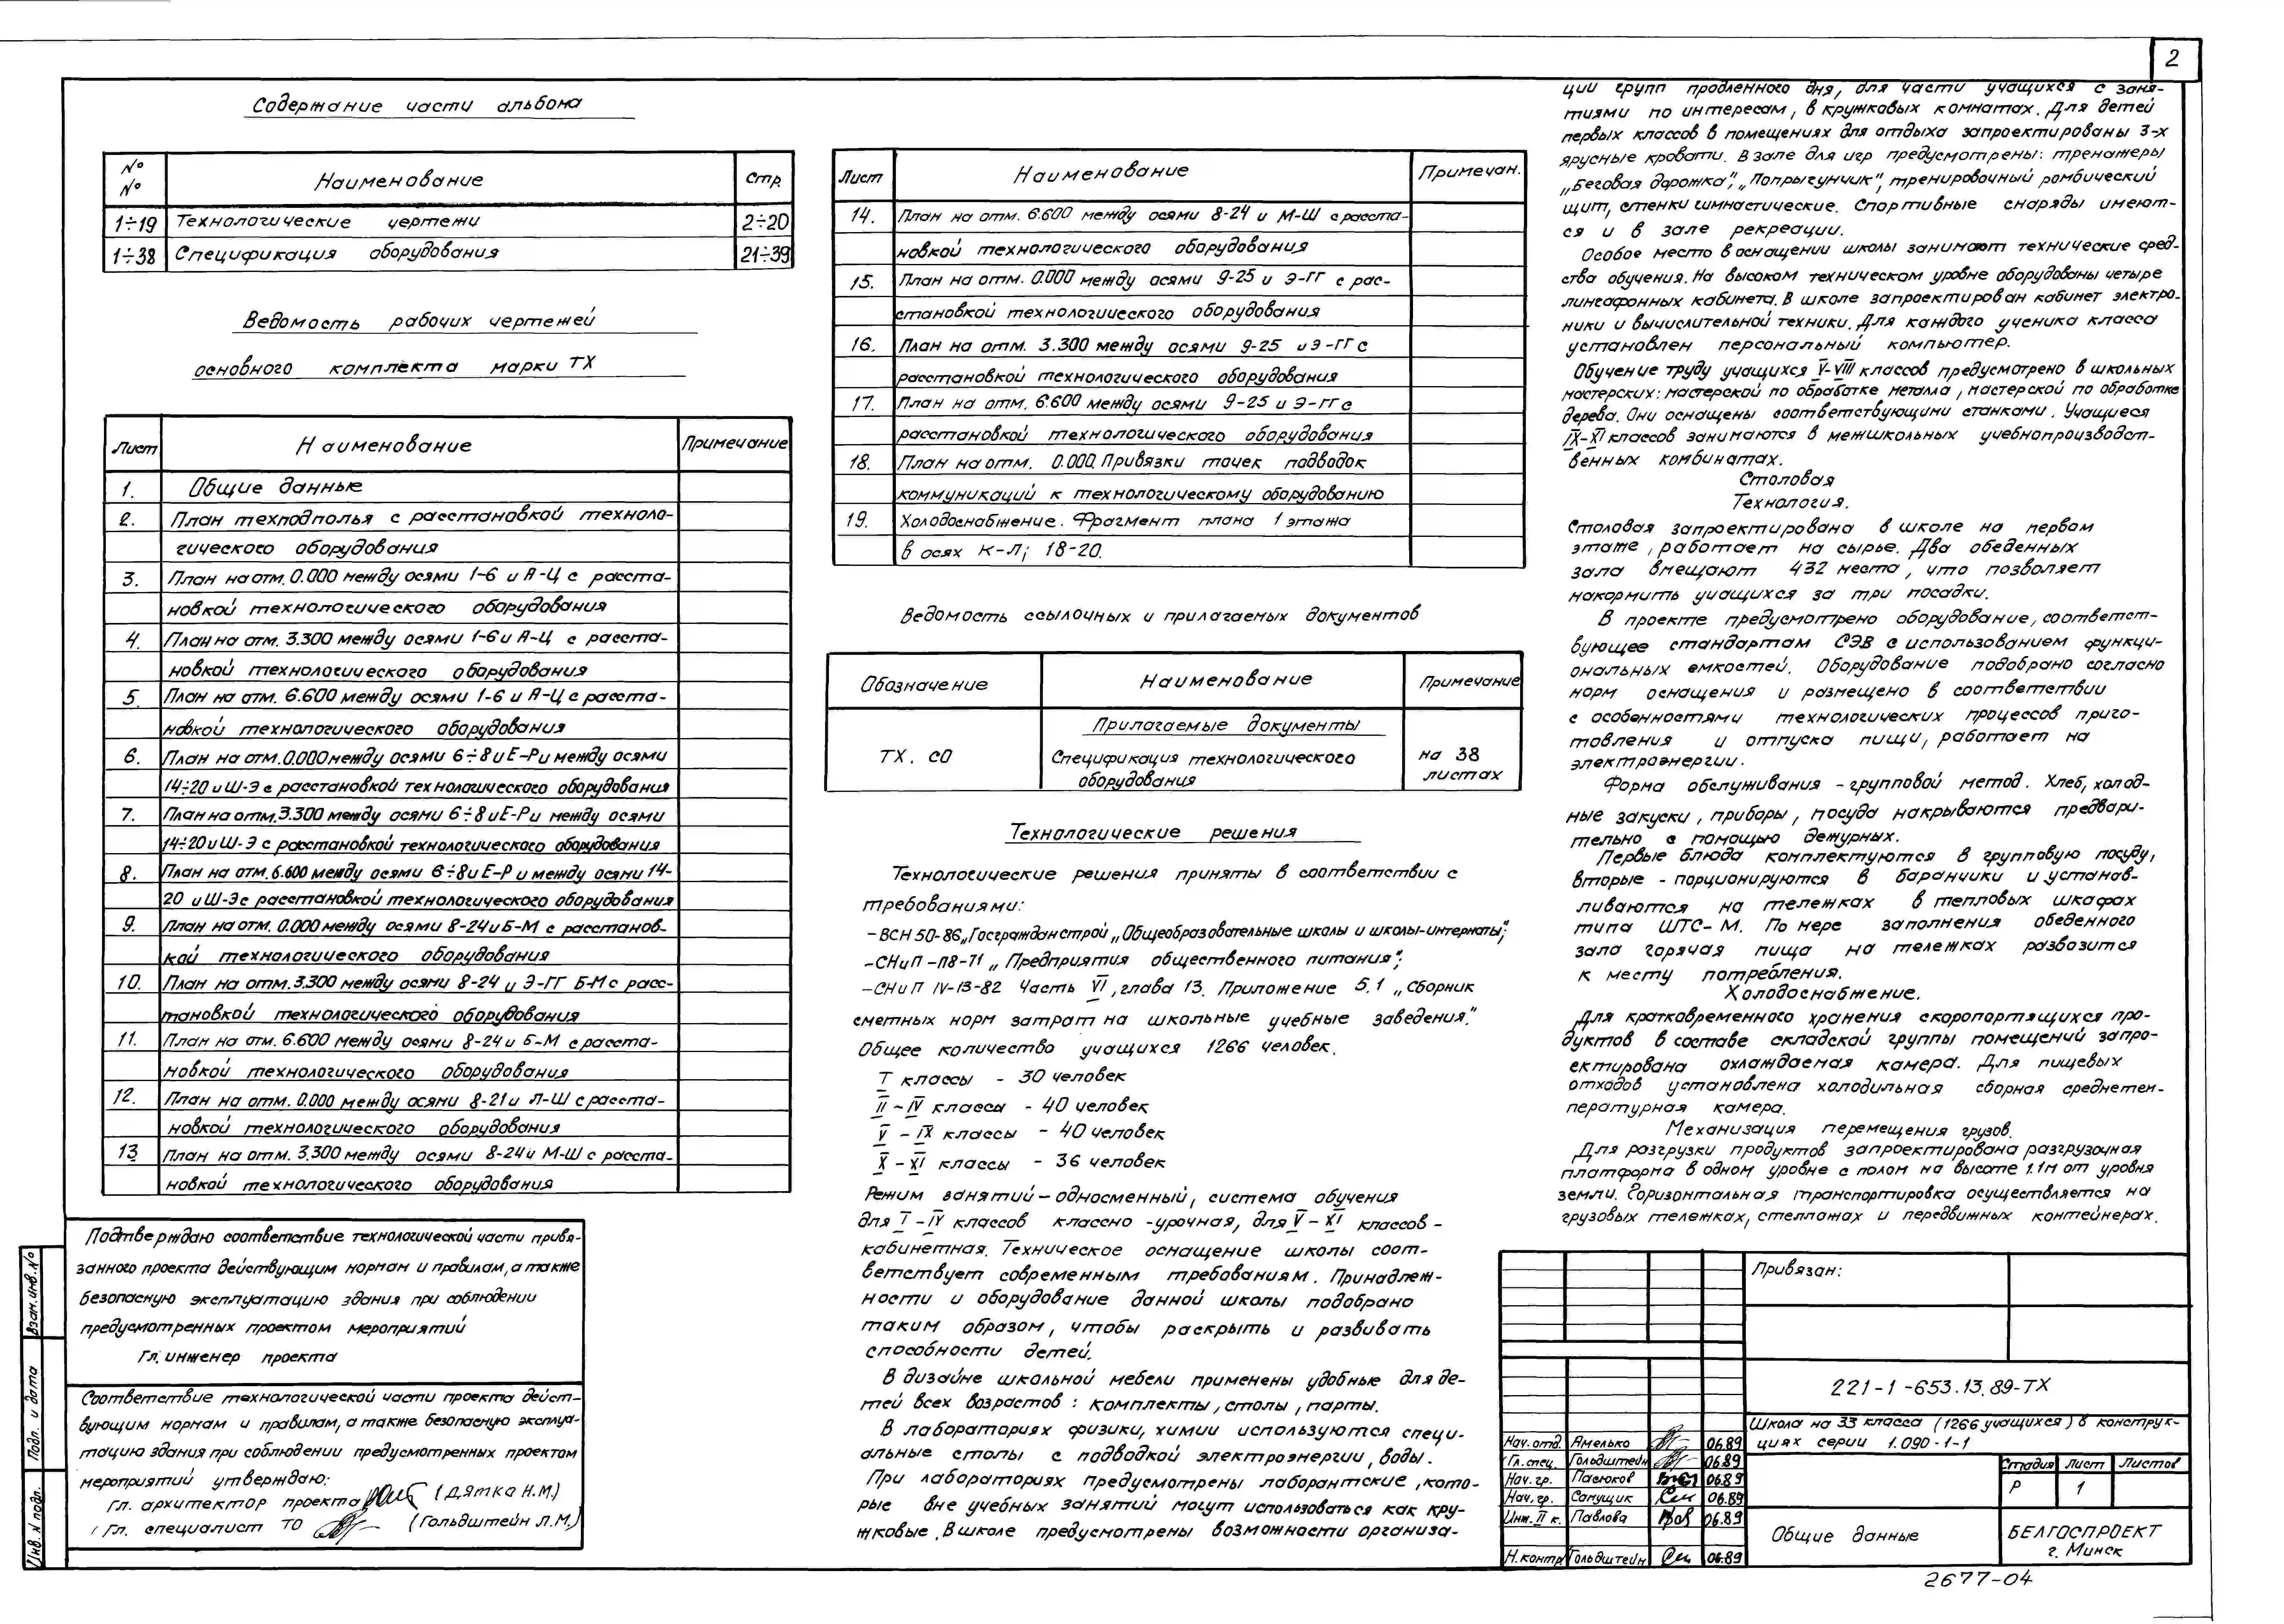 2
Содержание части альбома
№ №
Наименование
Стр.
1÷19 Технологические чертежи 2÷20
1÷38 Спецификация оборудования 21÷39
Ведомость рабочих чертежей
основного комплекта марки ТХ
Лист Наименование Примечание
1. Общие данные
2. План техподполья с расстановкой техноло-
гического оборудования
3. План на отм. 0.000 между осями 1-6 и А-Ц с расста-
новкой технологического оборудования
4. План на отм. 3.300 между осями 1-6 и А-Ц с расста-
новкой технологического оборудования
5. План на отм. 6.600 между осями 1-6 и А-Ц с расста-
новкой технологического оборудования
6. План на отм. 0.000 между осями 6÷8 и Е-Р и между осями
14÷20 и Ш-Э с расстановкой технологического оборудования
7. План на отм. 3.300 между осями 6÷8 и Е-Р и между осями
14÷20 и Ш-Э с расстановкой технологического оборудования
8. План на отм. 6.600 между осями 6÷8 и Е-Р и между осями 14-
20 и Ш-Э с расстановкой технологического оборудования
9. План на отм. 0.000 между осями 8-24 и Б-М с расстанов-
кой технологического оборудования
10. План на отм. 3.300 между осями 8-24 и Э-ГГ Б-М с расс-
тановкой технологического оборудования
11. План на отм. 6.600 между осями 8-24 и Б-М с расста-
новкой технологического оборудования
12. План на отм. 0.000 между осями 8-21 и Л-Ш с расста-
новкой технологического оборудования
13. План на отм. 3.300 между осями 8-24 и М-Ш с расста-
новкой технологического оборудования
Подтверждаю соответствие технологической части привя-
занного проекта действующим нормам и правилам, а также
безопасную эксплуатацию здания при соблюдении
предусмотренных проектом мероприятий
Гл. инженер проекта
Соответствие технологической части проекта дейст-
вующим нормам и правилам, а также безопасную эксплуа-
тацию здания при соблюдении предусмотренных проектом
мероприятий утверждаю:
Гл. архитектор проекта (Дятка Н.М.)
Гл. специалист ТО (Гольдштейн Л.М.)
Взам. инв. №
Подп. и дата
Инв. № подл.
Лист Наименование Примечан.
14. План на отм. 6.600 между осями 8-24 и М-Ш с расста-
новкой технологического оборудования
15. План на отм. 0.000 между осями 9-25 и Э-ГГ с рас-
становкой технологического оборудования
16. План на отм. 3.300 между осями 9-25 и Э-ГГ с
расстановкой технологического оборудования
17. План на отм. 6.600 между осями 9-25 и Э-ГГ с
расстановкой технологического оборудования
18. План на отм. 0.000. Привязки точек подводок
коммуникаций к технологическому оборудованию
19. Холодоснабжение. Фрагмент плана 1 этажа
в осях К-Л; 18-20.
Ведомость ссылочных и прилагаемых документов
Обозначение Наименование Примечание
Прилагаемые документы
ТХ. СО Спецификация технологического на 38
оборудования листах
Технологические решения
Технологические решения приняты в соответствии с
требованиями:
-ВСН 50-86 „Госгражданстрой „Общеобразовательные школы и школы-интернаты";
-СНиП-П8-71 „Предприятия общественного питания";
-СНиП IV-13-82 Часть VI, глава 13. Приложение 5.1 „Сборник
сметных норм затрат на школьные учебные заведения."
Общее количество учащихся 1266 человек.
I классы - 30 человек
II - IV классы - 40 человек
V - IX классы - 40 человек
X - XI классы - 36 человек
Режим занятий - односменный, система обучения
для I - IV классов классно-урочная, для V - XI классов -
кабинетная. Техническое оснащение школы соот-
ветствует современным требованиям. Принадлеж-
ности и оборудование данной школы подобрано
таким образом, чтобы раскрыть и развивать
способности детей.
В дизайне школьной мебели применены удобные для де-
тей всех возрастов: комплекты, столы, парты.
В лабораториях физики, химии используются специ-
альные столы с подводкой электроэнергии, воды.
При лабораториях предусмотрены лаборантские, кото-
рые вне учебных занятий могут использоваться как кру-
жковые. В школе предусмотрены возможности организа-
ции групп продленного дня, для части учащихся с заня-
тиями по интересам, в кружковых комнатах. Для детей
первых классов в помещениях для отдыха запроектированы 3-х
ярусные кровати. В зале для игр предусмотрены: тренажеры
„Беговая дорожка", „Попрыгунчик", тренировочный ромбический
щит, стенки гимнастические. Спортивные снаряды имеют-
ся и в зале рекреации.
Особое место в оснащении школы занимают технические сред-
ства обучения. На высоком техническом уровне оборудованы четыре
лингафонных кабинета. В школе запроектирован кабинет электро-
ники и вычислительной техники. Для каждого ученика класса
установлен персональный компьютер.
Обучение труду учащихся V-VIII классов предусмотрено в школьных
мастерских: мастерской по обработке металла, мастерской по обработке
дерева. Они оснащены соответствующими станками. Учащиеся
IX-XI классов занимаются в межшкольных учебнопроизводст-
венных комбинатах.
Столовая
Технология.
Столовая запроектирована в школе на первом
этаже, работает на сырье. Два обеденных
зала вмещают 432 места, что позволяет
накормить учащихся за три посадки.
В проекте предусмотрено оборудование, соответст-
вующее стандартам СЭВ с использованием функци-
ональных емкостей. Оборудование подобрано согласно
норм оснащения и размещено в соответствии
с особенностями технологических процессов приго-
товления и отпуска пищи, работает на
электроэнергии.
Форма обслуживания - групповой метод. Хлеб, холод-
ные закуски, приборы, посуда накрываются предвари-
тельно с помощью дежурных.
Первые блюда комплектуются в групповую посуду,
вторые - порционируются в баранчики и устанав-
ливаются на тележках в тепловых шкафах
типа ШТС-М. По мере заполнения обеденного
зала горячая пища на тележках развозится
к месту потребления.
Холодоснабжение.
Для кратковременного хранения скоропортящихся про-
дуктов в составе складской группы помещений запро-
ектирована охлаждаемая камера. Для пищевых
отходов установлена холодильная сборная среднетем-
пературная камера.
Механизация перемещения грузов.
Для разгрузки продуктов запроектирована разгрузочная
платформа в одном уровне с полом на высоте 1.1м от уровня
земли. Горизонтальная транспортировка осуществляется на
грузовых тележках, стеллажах и передвижных контейнерах.
Привязан:
221-1-653.13.89-ТХ
Школа на 33 класса (1266 учащихся) в конструк-
циях серии 1.090-1-1
Нач. отд. Амелько 06.89
Гл. спец. Гольдштейн 06.89
Нач. гр. Пасюков 06.89
Нач. гр. Сапущик 06.89
Инж. II к. Павлова 06.89
Н. контр. Гольдштейн 06.89
Стадия Лист Листов
Р 1
Общие данные
БЕЛГОСПРОЕКТ
г. Минск
2677-04